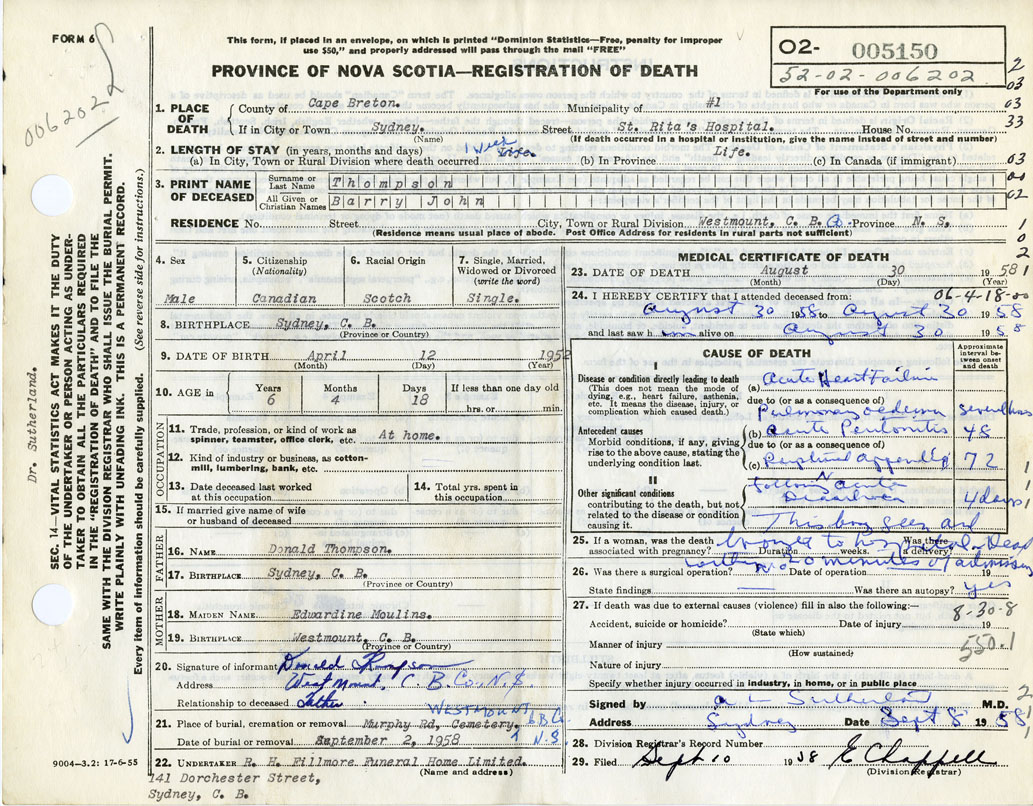 FORM 6
0062022
This form, if placed in an envelope, on which is printed "Dominion Statistics—Free, penalty for improper
use $50," and properly addressed will pass through the mail "FREE"
PROVINCE OF NOVA SCOTIA—REGISTRATION OF DEATH
02- 005150
52-02-006202
For use of the Department only
2
03
03
33
03
00
62
1
0
2
1. PLACE OF DEATH
County of Cape Breton. Municipality of #1
If in City or Town Sydney. Street St. Rita's Hospital. House No.
(Name) (If death occurred in hospital or institution, give the name instead of street and number)
2. LENGTH OF STAY (in years, months and days)
(a) In City, Town or Rural Division where death occurred 1 week Life. (b) In Province Life. (c) In Canada (if immigrant)
3. PRINT NAME OF DECEASED
Surname or Last Name Thompson
All Given or Christian Names Barry John
RESIDENCE No. Street City, Town or Rural Division Westmount, C. B. Co. Province N. S,
(Residence means usual place of abode. Post Office Address for residents in rural parts not sufficient)
SEC. 14—VITAL STATISTICS ACT MAKES IT THE DUTY
OF THE UNDERTAKER OR PERSON ACTING AS UNDER-
TAKER TO OBTAIN ALL THE PARTICULARS REQUIRED
IN THE "REGISTRATION OF DEATH" AND TO FILE THE
SAME WITH THE DIVISION REGISTRAR WHO SHALL ISSUE THE BURIAL PERMIT.
WRITE PLAINLY WITH UNFADING INK. THIS IS A PERMANENT RECORD.
Every item of information should be carefully supplied. (See reverse side for instructions.)
Dr. Sutherland.
4. Sex
Male
5. Citizenship
(Nationality)
Canadian
6. Racial Origin
Scotch
7. Single, Married,
Widowed or Divorced
(write the word)
Single.
8. BIRTHPLACE Sydney, C. B.
(Province or Country)
9. DATE OF BIRTH April 12 1952
(Month) (Day) (Year)
10. AGE in
Years Months Days If less than one day old
6 4 18 hrs. or min.
OCCUPATION
11. Trade, profession, or kind of work as
spinner, teamster, office clerk, etc. At home.
12. Kind of industry or business, as cotton-
mill, lumbering, bank, etc.
13. Date deceased last worked
at this occupation
14. Total yrs. spent in
this occupation
15. If married give name of wife
or husband of deceased
FATHER
16. NAME Donald Thompson.
17. BIRTHPLACE Sydney, C. B.
(Province or Country)
MOTHER
18. MAIDEN NAME Edwardine Moulins.
19. BIRTHPLACE Westmount, C. B.
(Province or Country)
20. Signature of informant Donald Thompson
Address West Mount, C. B. Co., N.S.
Relationship to deceased Father
WESTMOUNT,
21. Place of burial, cremation or removal Murphy Rd, Cemetery, C.B.Co.
Date of burial or removal September 2, 1958 N.S.
22. UNDERTAKER R. H. Fillmore Funeral Home Limited.
(Name and address)
9004-3.2: 17-6-55
141 Dorchester Street,
Sydney, C. B.
MEDICAL CERTIFICATE OF DEATH
23. DATE OF DEATH August 30 1958
(Month) (Day) (Year)
24. I HEREBY CERTIFY that I attended deceased from: 06-4-18-00
August 30 1958 to August 30 1958
and last saw him alive on August 30 1958
CAUSE OF DEATH
Approximate
interval be-
tween onset
and death
I
Disease or condition directly leading to death
(This does not mean the mode of
dying, e.g., heart failure, asthenia,
etc. It means the disease, injury, or
complication which caused death.)
(a) Acute Heart Failure
due to (or as a consequence of)
Pulmonary oedema several hrs
Antecedent causes
Morbid conditions, if any, giving
rise to the above cause, stating the
underlying condition last.
(b) Acute Peritonitis 48
due to (or as a consequence of)
(c) Ruptured appendix 72
II
Other significant conditions
contributing to the death, but not
related to the disease or condition
causing it.
following acute
Diarrhoea 4 days
This boy seen and
25. If a woman, was the death
associated with pregnancy? Duration weeks. Was there
a delivery?
brought to hospital. Dead
within 20 minutes of admission
26. Was there a surgical operation? No Date of operation 19
State findings — Was there an autopsy? yes
27. If death was due to external causes (violence) fill in also the following:—
8-30-8
Accident, suicide or homicide? Date of injury 19
(State which)
Manner of injury 550.1
(How sustained)
Nature of injury
Specify whether injury occurred in industry, in home, or in public place
Signed by A L Sutherland M.D.
Address Sydney Date Sept 8 1958
28. Division Registrar's Record Number
29. Filed Sept 10 1958 E Chappell
(Division Registrar)